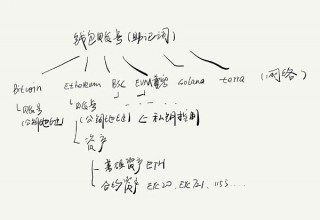 钱包账号(助记词)
Bitcoin Ethereum BSC EVM Solana terra (网络)
账号 账号
(公钥地址) (公钥地址) ← 私钥控制
资产
基础资产 ETH
合约资产 ERC20. ERC721. 1155....